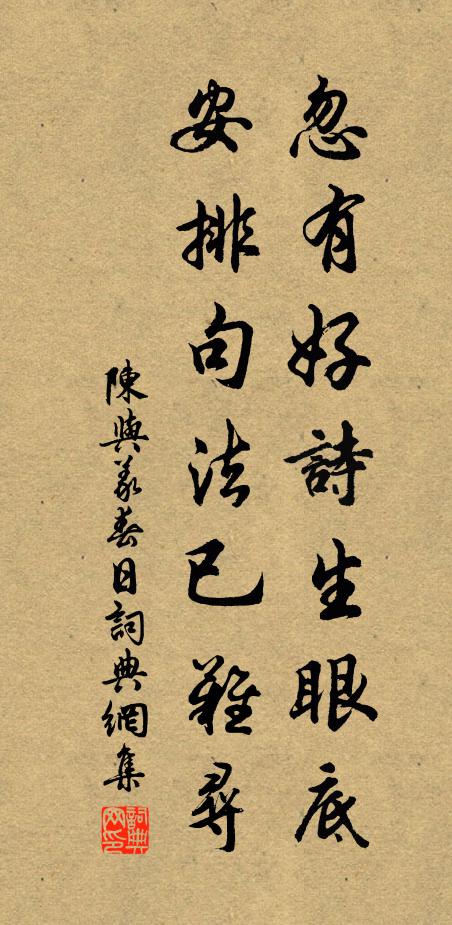 忽有好詩生眼底
安排句法已難尋
陳與義春日詞典網集
詞典网印